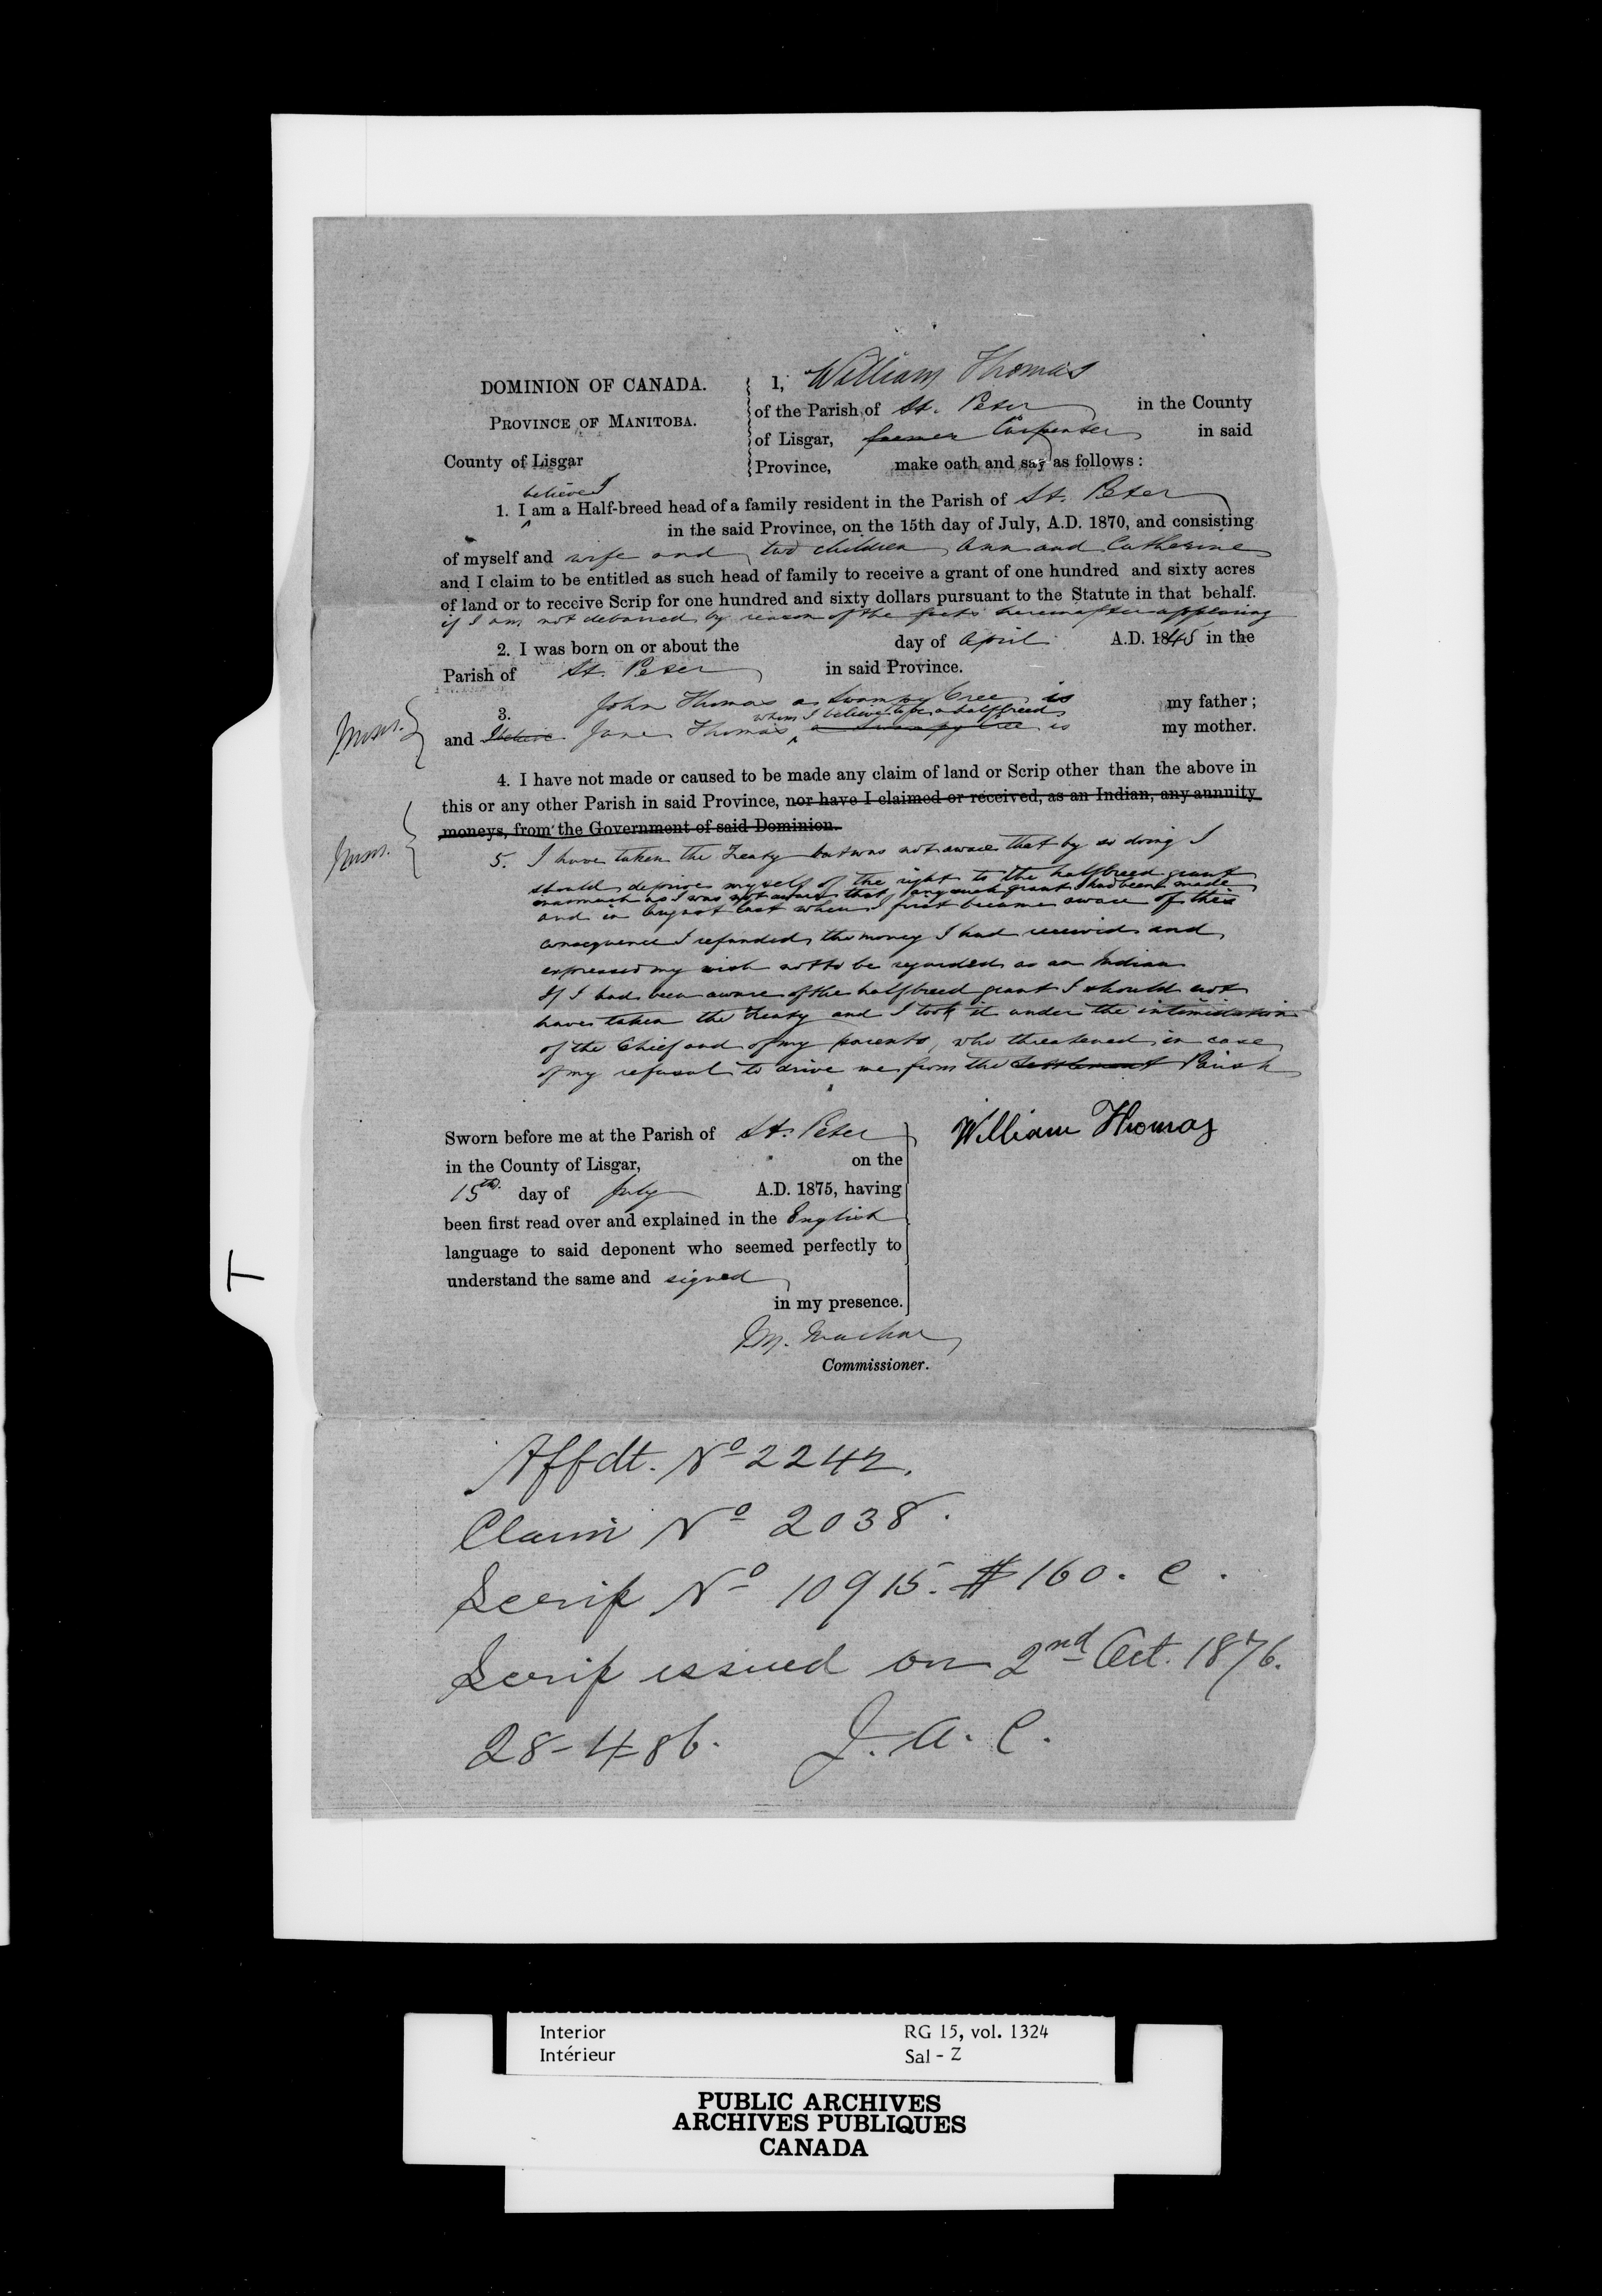 DOMINION OF CANADA.
PROVINCE OF MANITOBA.
County of Lisgar
1, William Thomas
of the Parish of St. Peter in the County
of Lisgar, farmer Carpenter in said
Province, make oath and say as follows:
believe I
1. I am a Half-breed head of a family resident in the Parish of St. Peter
in the said Province, on the 15th day of July, A.D. 1870, and consisting
of myself and wife and two children Ann and Catherine
and I claim to be entitled as such head of family to receive a grant of one hundred and sixty acres
of land or to receive Scrip for one hundred and sixty dollars pursuant to the Statute in that behalf.
if I am not debarred by reason of the facts hereinafter appearing
2. I was born on or about the day of April A.D. 1845 in the
Parish of St. Peter in said Province.
3. John Thomas a Swampy Cree is my father;
whom I believe to be a halfbreed
and Jane Thomas a Swampy Cree is my mother.
4. I have not made or caused to be made any claim of land or Scrip other than the above in
this or any other Parish in said Province, nor have I claimed or received, as an Indian, any annuity
moneys, from the Government of said Dominion.
5. I have taken the Treaty but was not aware that by so doing I
should deprive myself of the right to the halfbreed grant
inasmuch as I was not aware that any such grant had been made
and in August last when I first became aware of this
consequence I refunded the money I had received and
expressed my wish not to be regarded as an Indian
If I had been aware of the halfbreed grant I should not
have taken the Treaty and I took it under the intimidation
of the Chief and of my parents, who threatened in case
of my refusal to drive me from the Settlement Parish
Sworn before me at the Parish of St. Peter
in the County of Lisgar, on the
15th day of July A.D. 1875, having
been first read over and explained in the English
language to said deponent who seemed perfectly to
understand the same and signed
in my presence.
William Thomas
J.M. Machar
Commissioner.
T
Affdt. No 2242.
Claim No 2038.
Scrip No 10915. $160. C.
Scrip issued on 2nd Oct. 1876.
28-4-86. J.A.C.
Interior RG 15, vol. 1324
Intérieur Sal - Z
PUBLIC ARCHIVES
ARCHIVES PUBLIQUES
CANADA